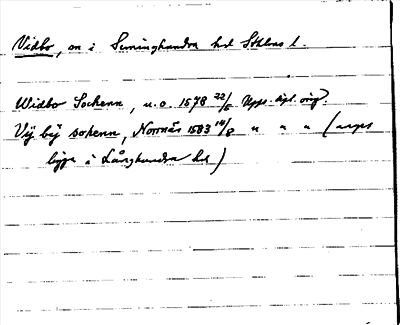 Vidbo, sn i Seminghundra hd Sthlms l.
Widbo Sochenn, u.o. 1578 22/5 Upps. dipl. orig.
Vij bij sokenn, Norrnäs 1583 14/8 " " " (anges
ligga i Långhundra hd)